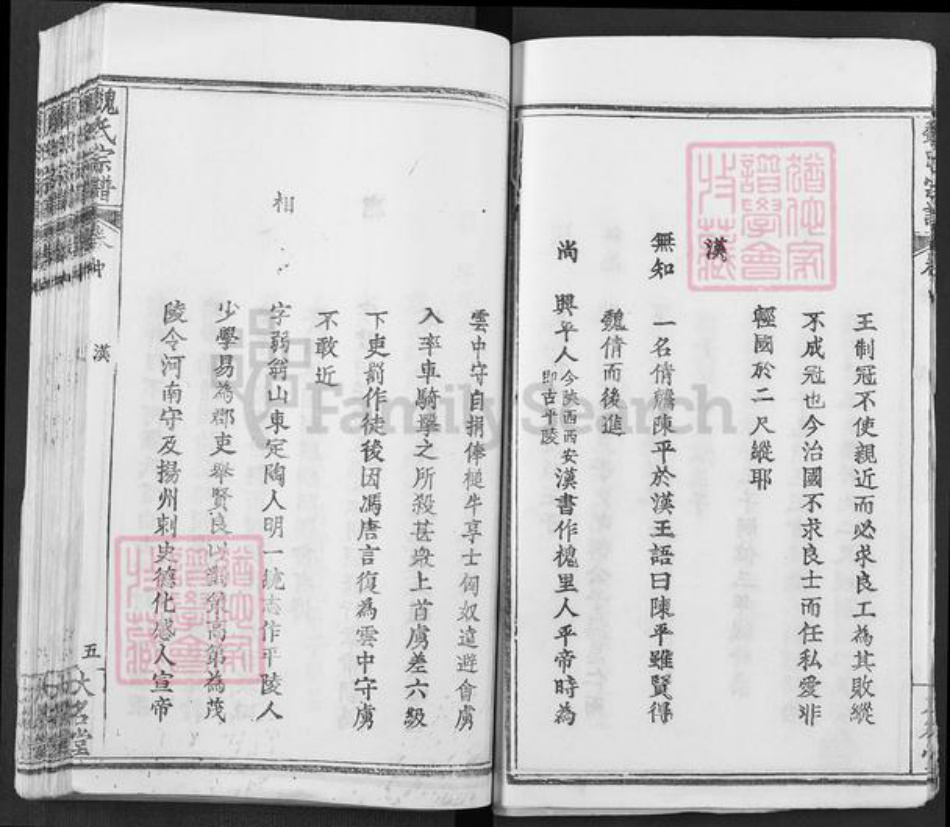 王制冠不使親近而必求良工為其敗縱
不成冠也今治國不求良士而任私愛非
輕國於二尺縱耶
漢
無知
一名倩薦陳平於漢王語曰陳平雖賢得
魏倩而後進
尚
興平人今陝西西安即古平陵漢書作槐里人平帝時為
雲中守自捐俸槌牛享士匈奴遠避會虜
入率車騎擊之所殺甚衆上首虜差六級
下吏罰作徒後因馮唐言復為雲中守虜
不敢近
相
字弱翁山東定陶人明一統志作平陵人
少學易為郡吏舉賢良以對策高第為茂
陵令河南守及揚州刺史德化感人宣帝
魏氏宗譜
卷中
漢
五
大名堂
FamilySearch